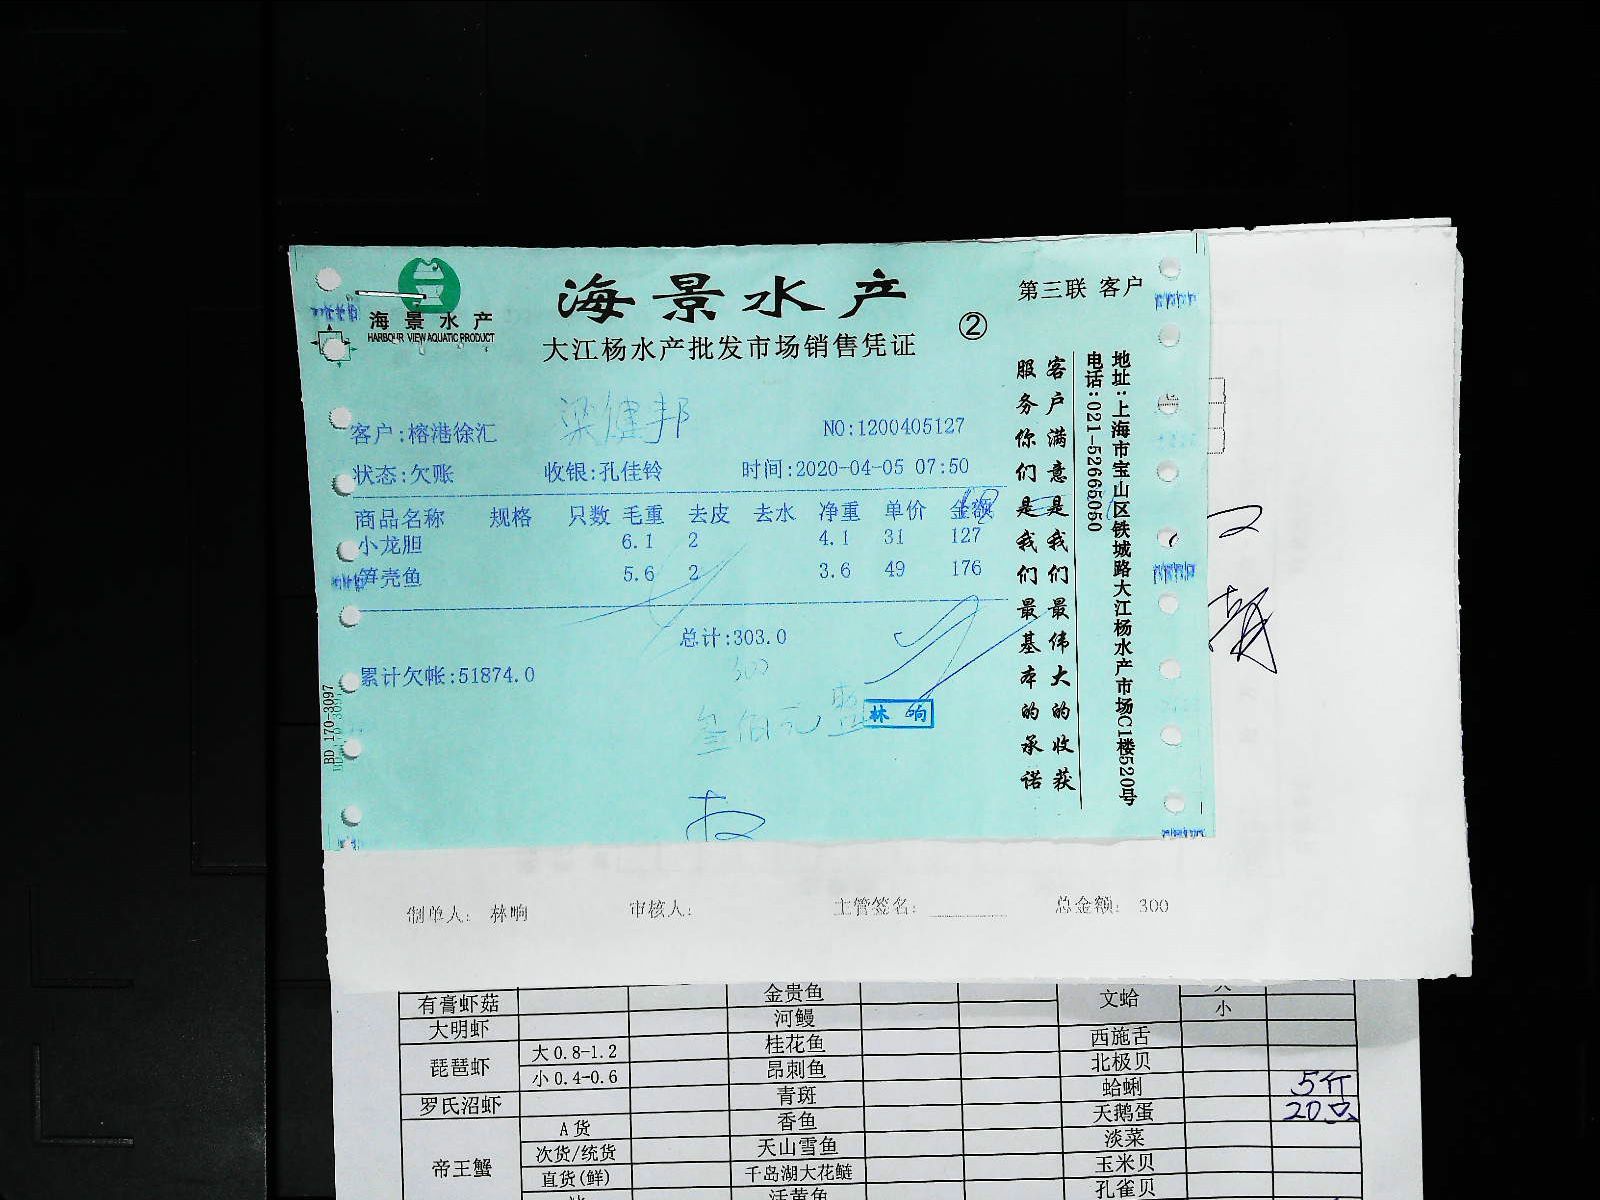 海景水产
HARBOUR VIEW AQUATIC PRODUCT
海景水产
大江杨水产批发市场销售凭证
②
第三联 客户
客户:榕港徐汇 梁健邦 NO:1200405127
状态:欠账 收银:孔佳铃 时间:2020-04-05 07:50
商品名称 规格 只数 毛重 去皮 去水 净重 单价 金额
小龙胆 6.1 2 4.1 31 127
笋壳鱼 5.6 2 3.6 49 176
总计:303.0
300
累计欠帐:51874.0
叁佰元整
林响
客户满意是我们最伟大的收获
服务你们是我们最基本的承诺
地址:上海市宝山区铁城路大江杨水产市场C1楼520号
电话:021-52665050
BD 170-3097
制单人: 林响 审核人: 主管签名: 总金额: 300
有膏虾菇 金贵鱼 文蛤 大
小
大明虾 河鳗
琵琶虾 大0.8-1.2 桂花鱼 西施舌
小0.4-0.6 昂刺鱼 北极贝
罗氏沼虾 青斑 蛤蜊 5斤
帝王蟹 A货 香鱼 天鹅蛋 20只
次货/统货 天山雪鱼 淡菜
直货(鲜) 千岛湖大花鲢 玉米贝
活黄鱼 孔雀贝